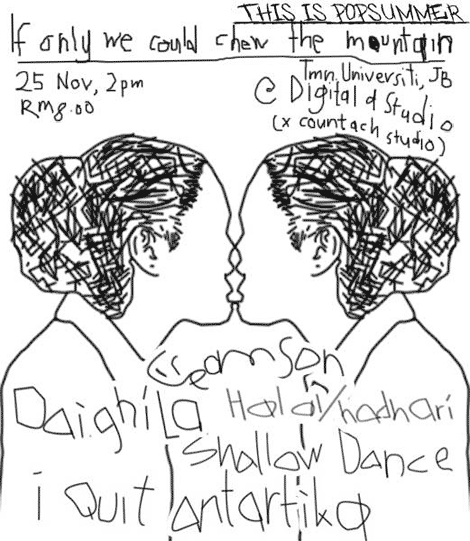 THIS IS POPSUMMER
If only we could chew the mountain
25 Nov, 2pm
RM8.00
Tmn. Universiti, JB
@ Digital d Studio
(x countach studio)
Daighila Halal/hadhari
Shallow Dance
i Quit antartika